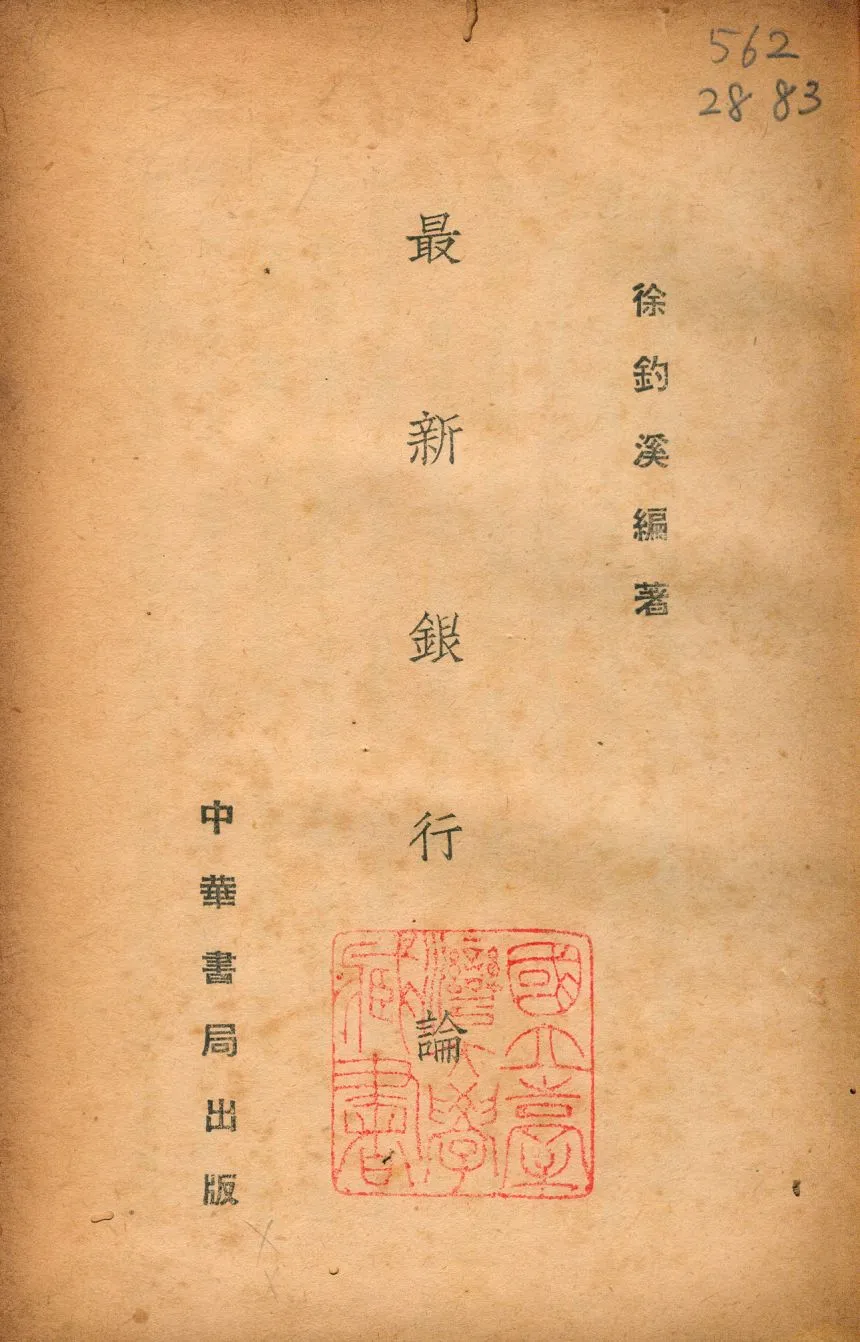 562
2883
徐釣溪編著
最新銀行論
中華書局出版
國立臺
灣大學
藏書